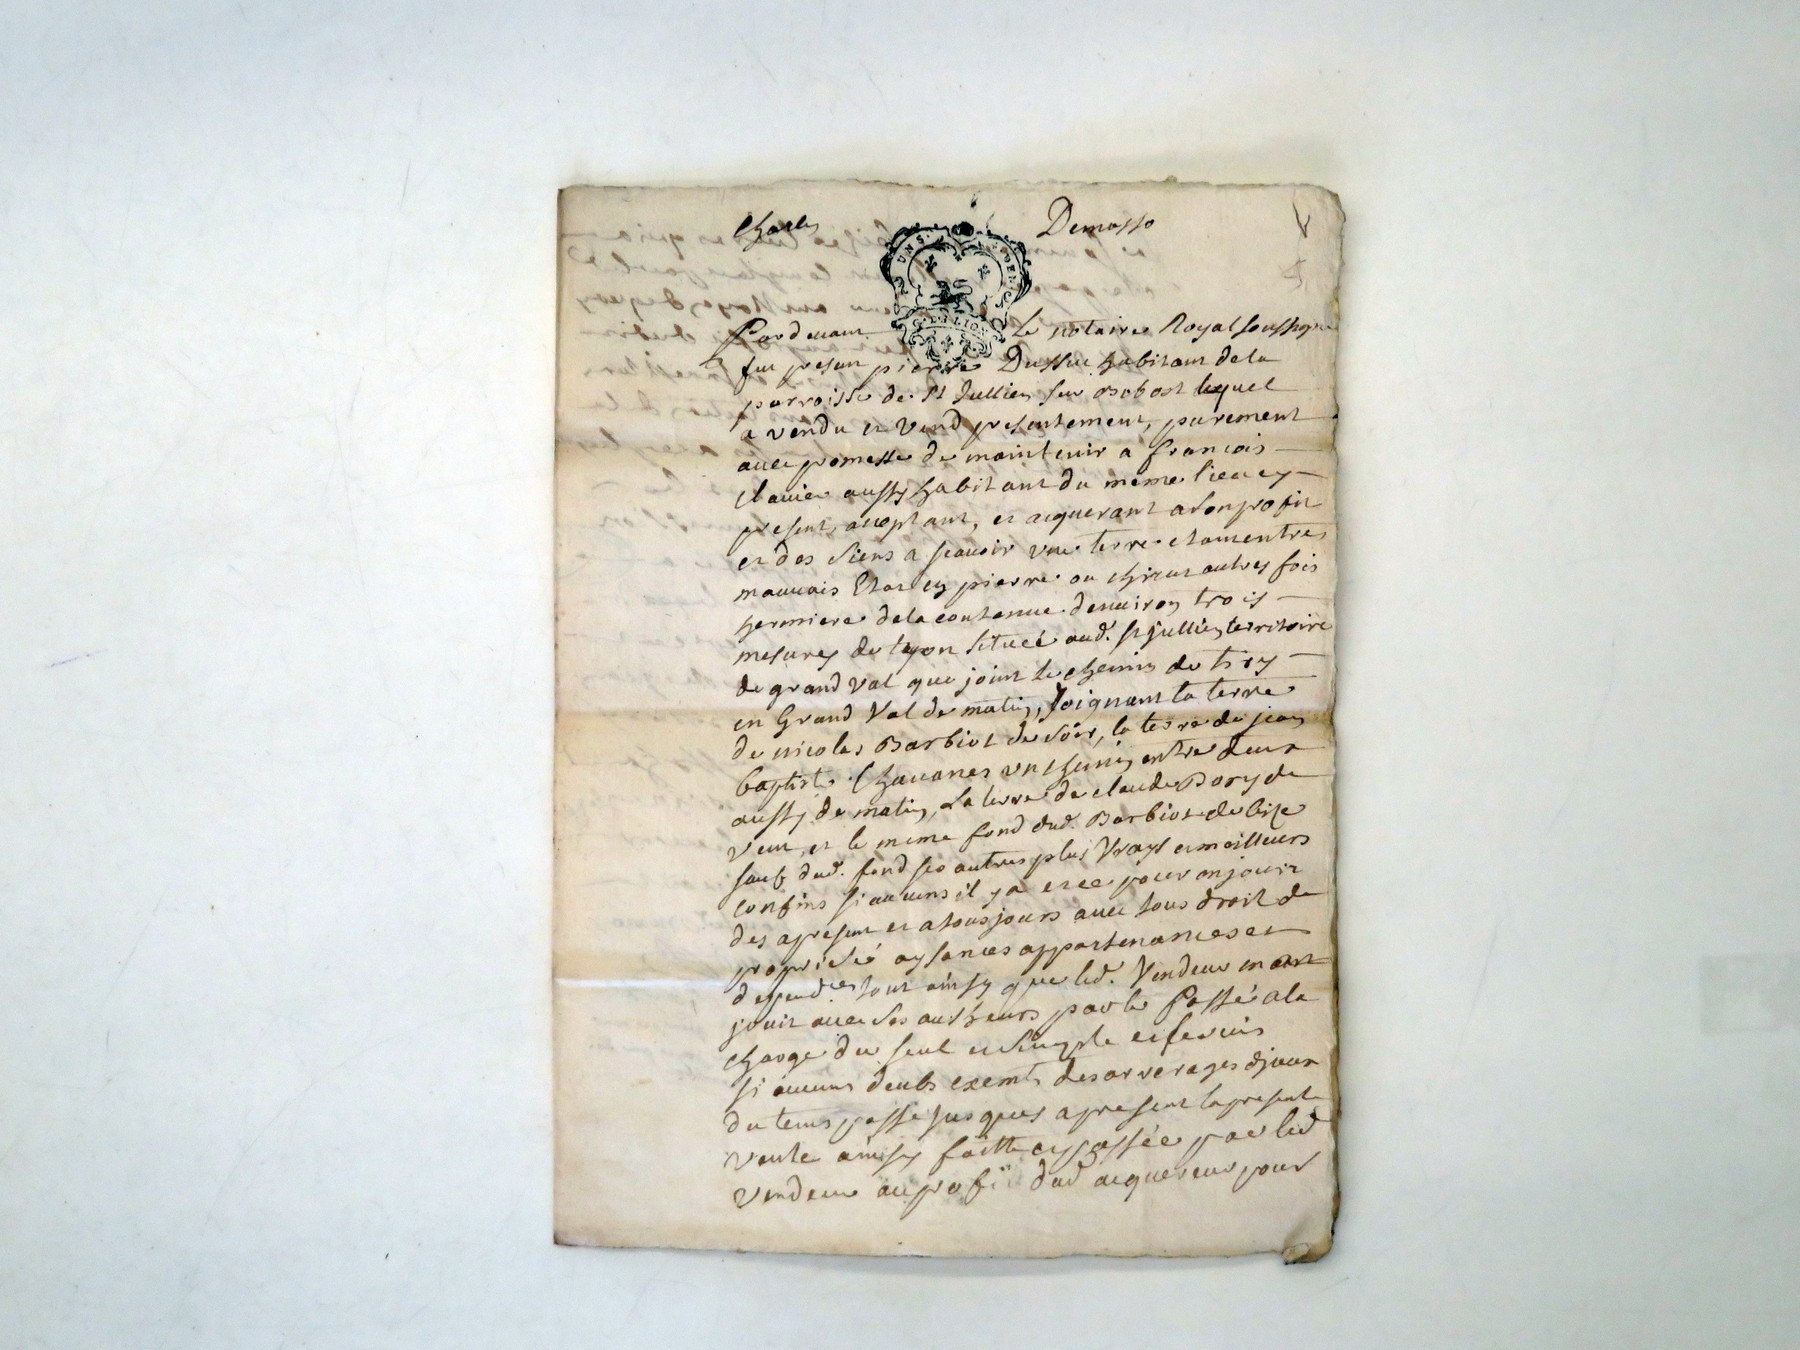 Charles Demasso
G. DE LION
Pardevant Le notaire Royal soussigne
fut present pierre Dussuc habitant de la
parroisse de St Jullien sur Bibost lequel
a vendu et vend presentement, purement
avec promesse de maintenir a francois
Clavier aussy habitant du meme lieu cy
present, acceptant, et acquerant a son profit
et des siens a scavoir une terre
mauvais Etat en pierre ou autres fois
hermiere de la contenue denviron trois
mesures de lyon située aud. St jullien territoire
de grand val que joint le chemin de tiry
en Grand Val de matin, Joignant la terre
de nicolas Barbiot de soir, la terre de jean
baptiste Chavanes un chemin entre deux
aussy de matin, La terre de claude Dory de
vent, et le meme fond dud. Barbiot de bize
sauf dud. fond ses autres plus Vrays et meilleurs
confins si aucuns il y a et ce pour en jouir
des apresent et a tousjours avec tous droit de
proprieté aysances appartenances et
depend.ces tout ainsy que led. Vendeur en a
jouit avec ses autheurs par le Passé a la
charge du seul et simple cis fervis
si aucuns deubs exempts des arrerages diceux
du tems passe jusques apresent la presente
vente ainsy faitte et passée par led
vendeur au profit dud acquereur pour